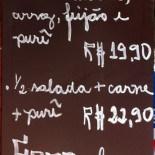 arroz, feijão e
purê
R$ 19,90
. 1/2 salada + carne
+ purê R$ 22,90